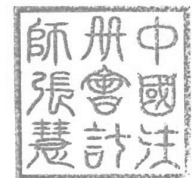 中國注
册會計
師張慧